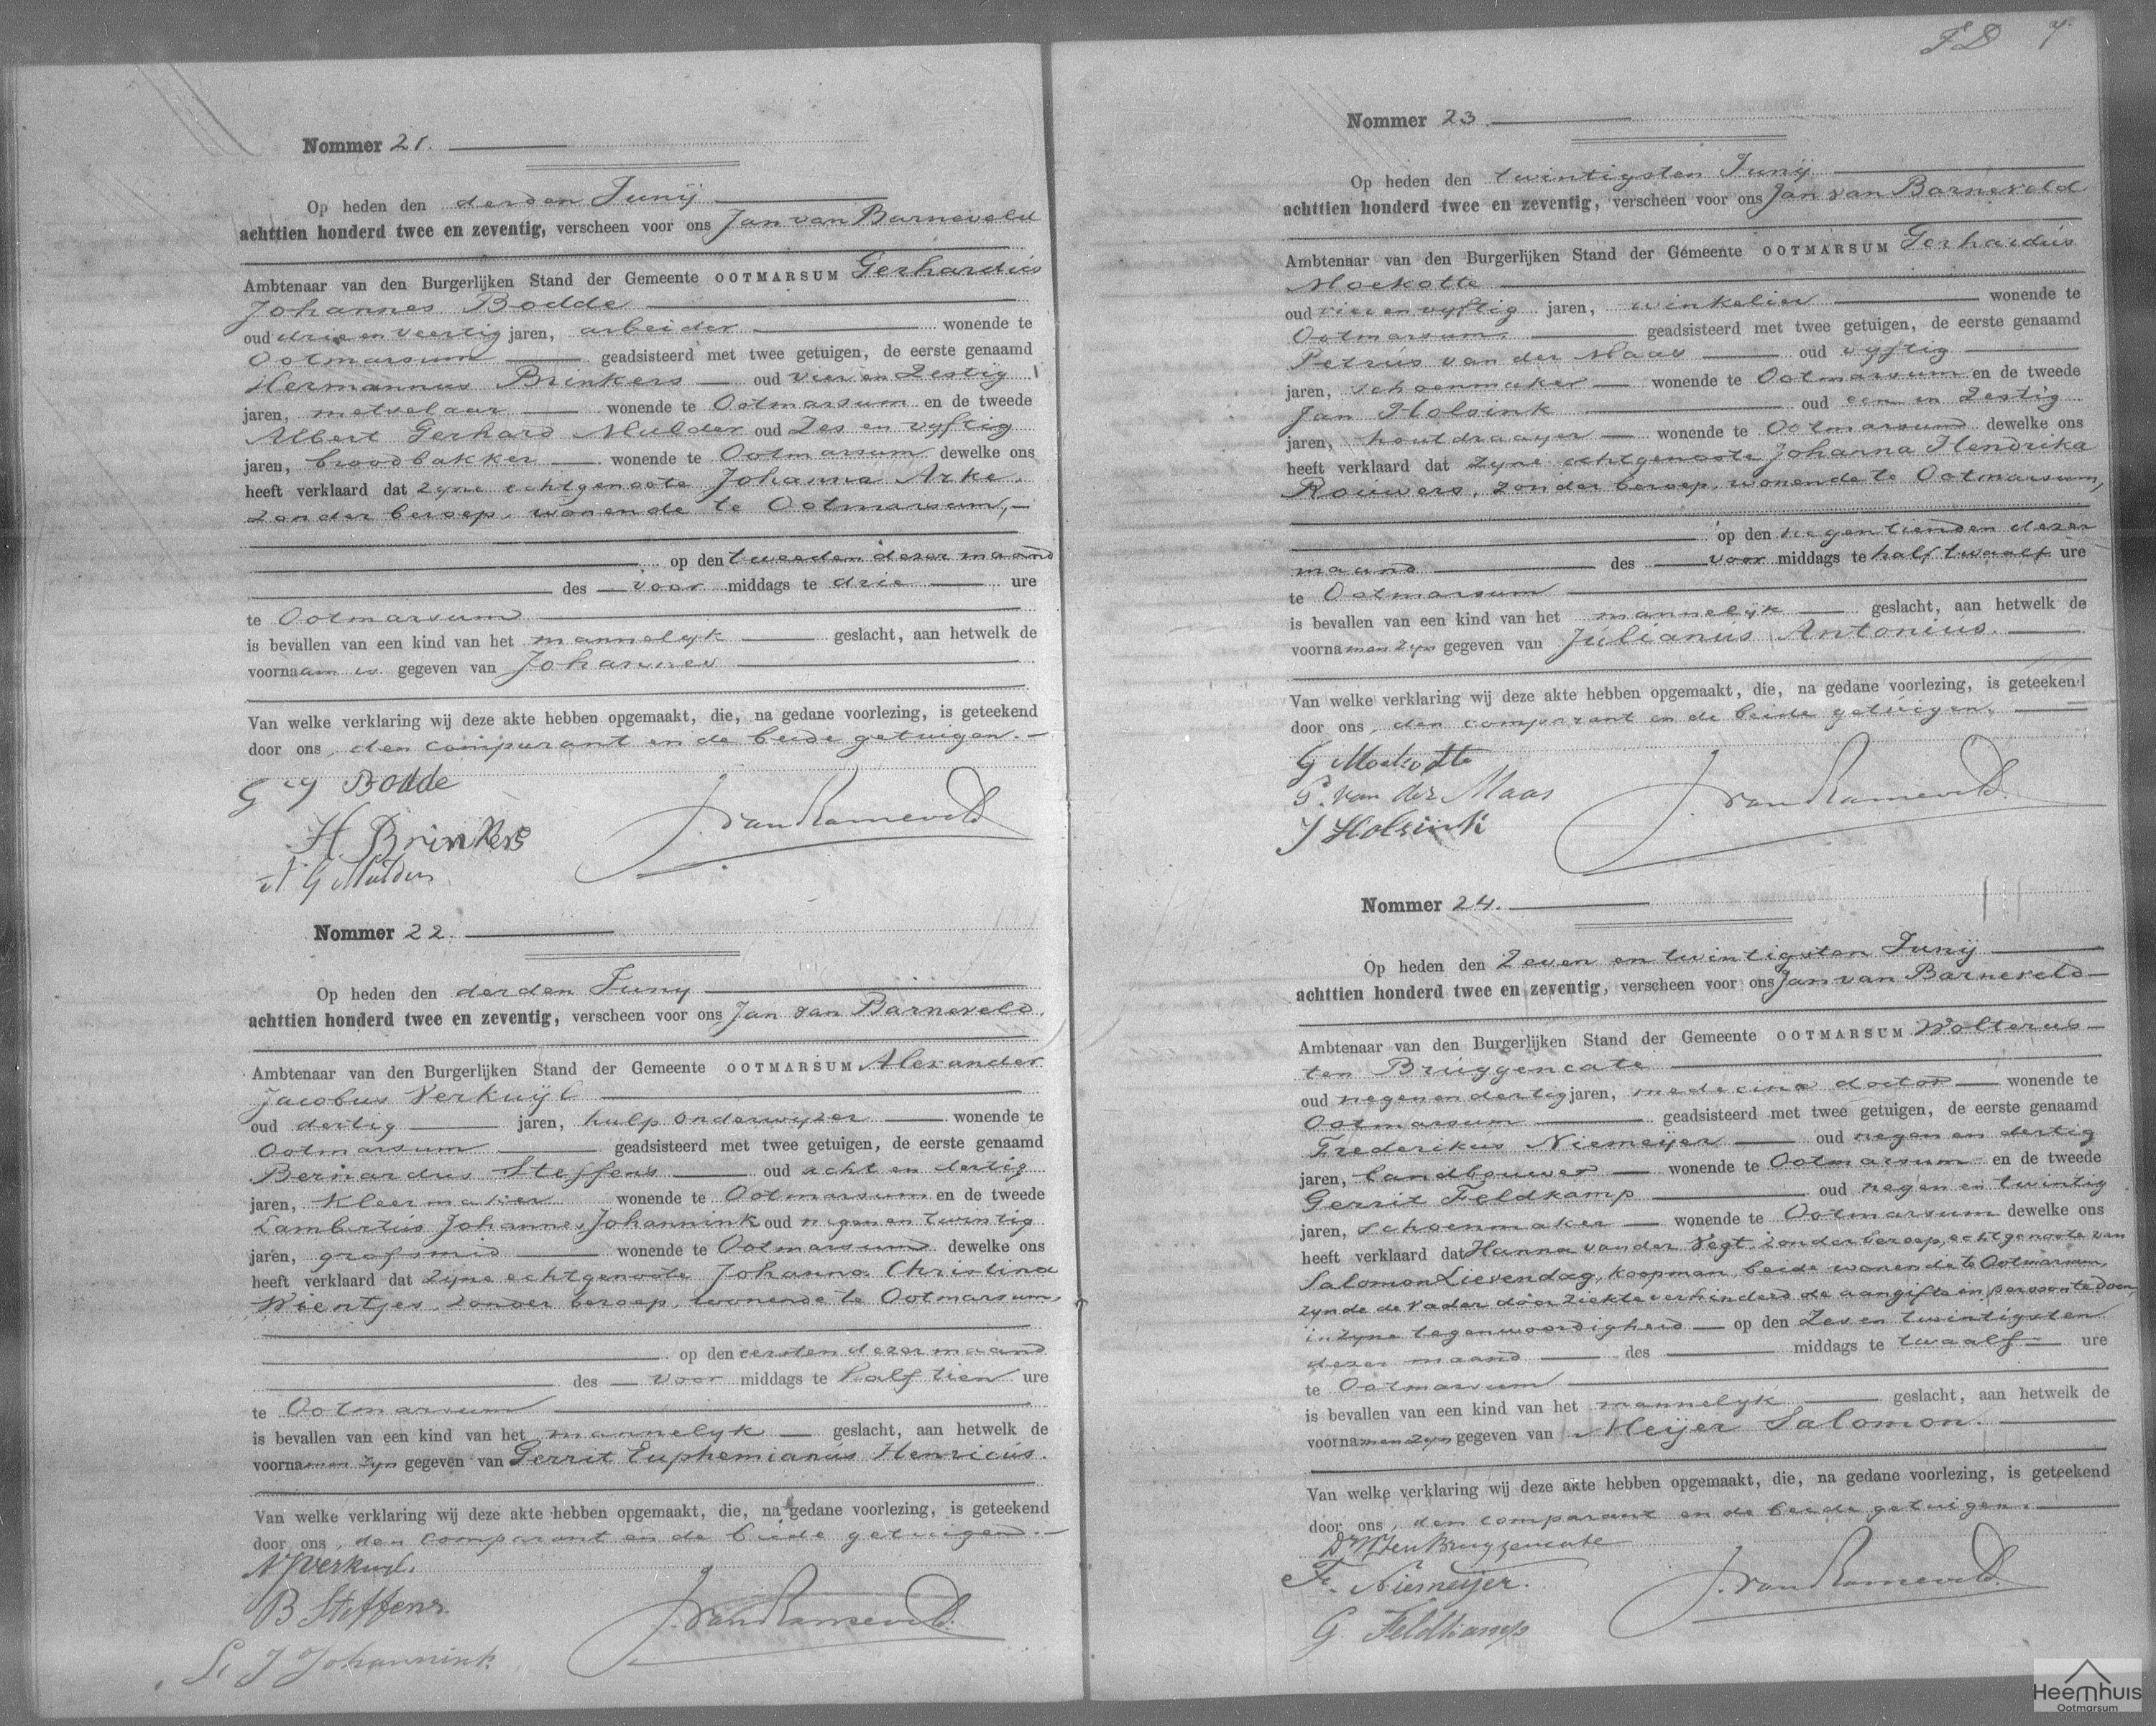 Nommer 21.
Op heden den derden Junij
achttien honderd twee en zeventig, verscheen voor ons Jan van Barneveld
Ambtenaar van den Burgerlijken Stand der Gemeente OOTMARSUM Gerhardus
Johannes Bodde
oud drie en veertig jaren, arbeider wonende te
Ootmarsum geadsisteerd met twee getuigen, de eerste genaamd
Hermannus Brinkers oud vier en Zestig
jaren, metselaar wonende te Ootmarsum en de tweede
Albert Gerhard Mulder oud Zes en vyftig
jaren, broodbakker wonende te Ootmarsum dewelke ons
heeft verklaard dat zyne echtgenoote Johanna Arke,
zonder beroep, wonende te Ootmarsum,
op den tweeden dezer maand
des voor middags te drie ure
te Ootmarsum
is bevallen van een kind van het mannelyk geslacht, aan hetwelk de
voornaam is gegeven van Johannes
Van welke verklaring wij deze akte hebben opgemaakt, die, na gedane voorlezing, is geteekend
door ons, den comparant en de beide getuigen.
G J Bodde
H Brinkers
A G Mulder
J. van Barneveld
Nommer 22.
Op heden den derden Juny
achttien honderd twee en zeventig, verscheen voor ons Jan van Barneveld
Ambtenaar van den Burgerlijken Stand der Gemeente OOTMARSUM Alexander
Jacobus Verkuijl
oud dertig jaren, hulp onderwyzer wonende te
Ootmarsum geadsisteerd met twee getuigen, de eerste genaamd
Bernardus Steffens oud acht en dertig
jaren, kleermaker wonende te Ootmarsum en de tweede
Lambertus Johannes Johannink oud negen en twintig
jaren, grofsmid wonende te Ootmarsum dewelke ons
heeft verklaard dat zyne echtgenoote Johanna Christina
Wientjes, zonder beroep, wonende te Ootmarsum,
op den eersten dezer maand
des voor middags te half tien ure
te Ootmarsum
is bevallen van een kind van het mannelyk geslacht, aan hetwelk de
voornamen zyn gegeven van Gerrit Euphemianus Henricus.
Van welke verklaring wij deze akte hebben opgemaakt, die, na gedane voorlezing, is geteekend
door ons, den comparant en de beide getuigen.
AJVerkuyl.
B Steffens.
L. J Johannink
J. van Barneveld.
Nommer 23.
Op heden den twintigsten Junij
achttien honderd twee en zeventig, verscheen voor ons Jan van Barneveld
Ambtenaar van den Burgerlijken Stand der Gemeente OOTMARSUM Gerhardus
Moekotte
oud vier en vyftig jaren, winkelier wonende te
Ootmarsum. geadsisteerd met twee getuigen, de eerste genaamd
Petrus van der Maas oud vyftig
jaren, schoenmaker wonende te Ootmarsum en de tweede
Jan Holsink oud een en zestig
jaren, houtdraayer wonende te Ootmarsum dewelke ons
heeft verklaard dat zyne echtgenoote Johanna Hendrika
Rouwers, zonder beroep, wonende te Ootmarsum,
op den negentienden dezer
maand des voor middags te half twaalf ure
te Ootmarsum
is bevallen van een kind van het mannelyk geslacht, aan hetwelk de
voornamen zyn gegeven van Julianus Antonius.
Van welke verklaring wij deze akte hebben opgemaakt, die, na gedane voorlezing, is geteekend
door ons, den comparant en de beide getuigen.
G Moekotte
P. van der Maas
J Holsink
J. van Barneveld.
Nommer 24.
Op heden den Zeven en twintigsten Junij
achttien honderd twee en zeventig, verscheen voor ons Jan van Barneveld
Ambtenaar van den Burgerlijken Stand der Gemeente OOTMARSUM Wolterus
ten Bruggencate
oud negen en dertig jaren, medecinae doctor wonende te
Ootmarsum geadsisteerd met twee getuigen, de eerste genaamd
Frederikus Niemeijer oud negen en dertig
jaren, landbouwer wonende te Ootmarsum en de tweede
Gerrit Feldkamp oud negen en twintig
jaren, schoenmaker wonende te Ootmarsum dewelke ons
heeft verklaard dat Hanna van der Vegt zonder beroep, echtgenoote van
Salomon Lievendag, koopman, beide wonende te Ootmarsum,
zynde de vader door ziekte verhinderd de aangifte in persoon te doen,
in zyne tegenwoordigheid op den Zes en twintigsten
dezer maand des middags te twaalf ure
te Ootmarsum
is bevallen van een kind van het mannelyk geslacht, aan hetwelk de
voornamen zyn gegeven van Meijer Salomon.
Van welke verklaring wij deze akte hebben opgemaakt, die, na gedane voorlezing, is geteekend
door ons, den comparant en de beide getuigen.
Dr W ten Bruggencate
Fr. Niemeijer.
G. Feldkamp
J. van Barneveld.
Heemhuis
Ootmarsum